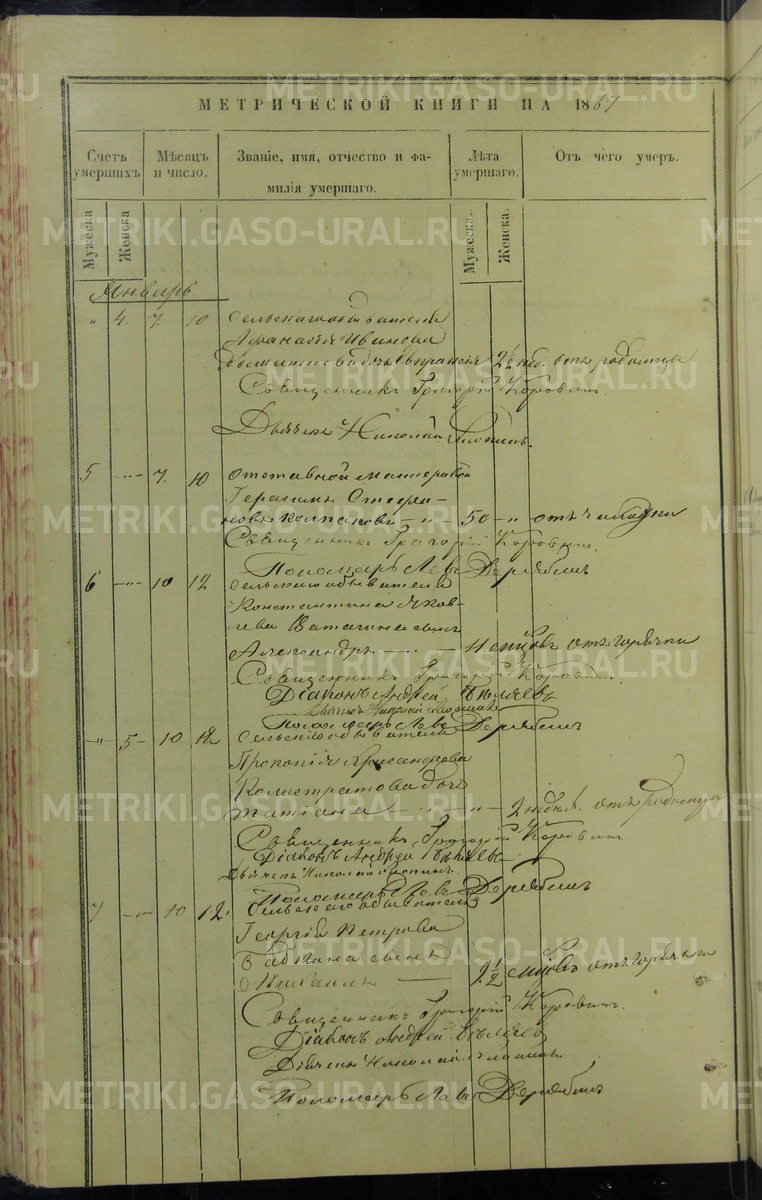 МЕТРИЧЕСКОЙ КНИГИ НА 1867
Счетъ умершихъ
Мѣсяцъ и число.
Званіе, имя, отчество и фамилія умершаго.
Лѣта умершаго.
Отъ чего умеръ.
Мужеска
Женска
Мужеска.
Женска.
Январь
" 4. 7. 10 Сельскаго обывателя
Афанасія Иванова
дочь 2½ нед. отъ родимца
Священникъ Григорій Коровинъ
Дьячекъ Николай
5 — 7. 10 Отставной мастеровой
Герасимъ Стефановъ Колпаковъ — " — 50 — " отъ чахотки
Священникъ Григорій Коровинъ.
Пономарь Левъ Дерябинъ
6 — 10 12 Сельскаго обывателя
Константина Яковлева сынъ
Александръ — 11 отъ горячки
Священникъ Григорій Коровинъ.
Діаконъ Андрей Бѣляевъ
Дьячекъ Николай
Пономарь Левъ Дерябинъ
" 5 10 12 Сельскаго обывателя
Прокопія
Калистратова дочь
Татіана — " — " — 2 недѣл. отъ родимца
Священникъ Григорій Коровинъ.
Діаконъ Андрей Бѣляевъ
Дьячекъ Николай
Пономарь Левъ Дерябинъ
7 — 10 12. Сельскаго обывателя
Георгія Петрова
Бабкина сынъ
Михаилъ — 2½ отъ горячки
Священникъ Григорій Коровинъ.
Діаконъ Андрей Бѣляевъ
Дьячекъ Николай
Пономарь Левъ Дерябинъ
METRIKI.GASO-URAL.RU